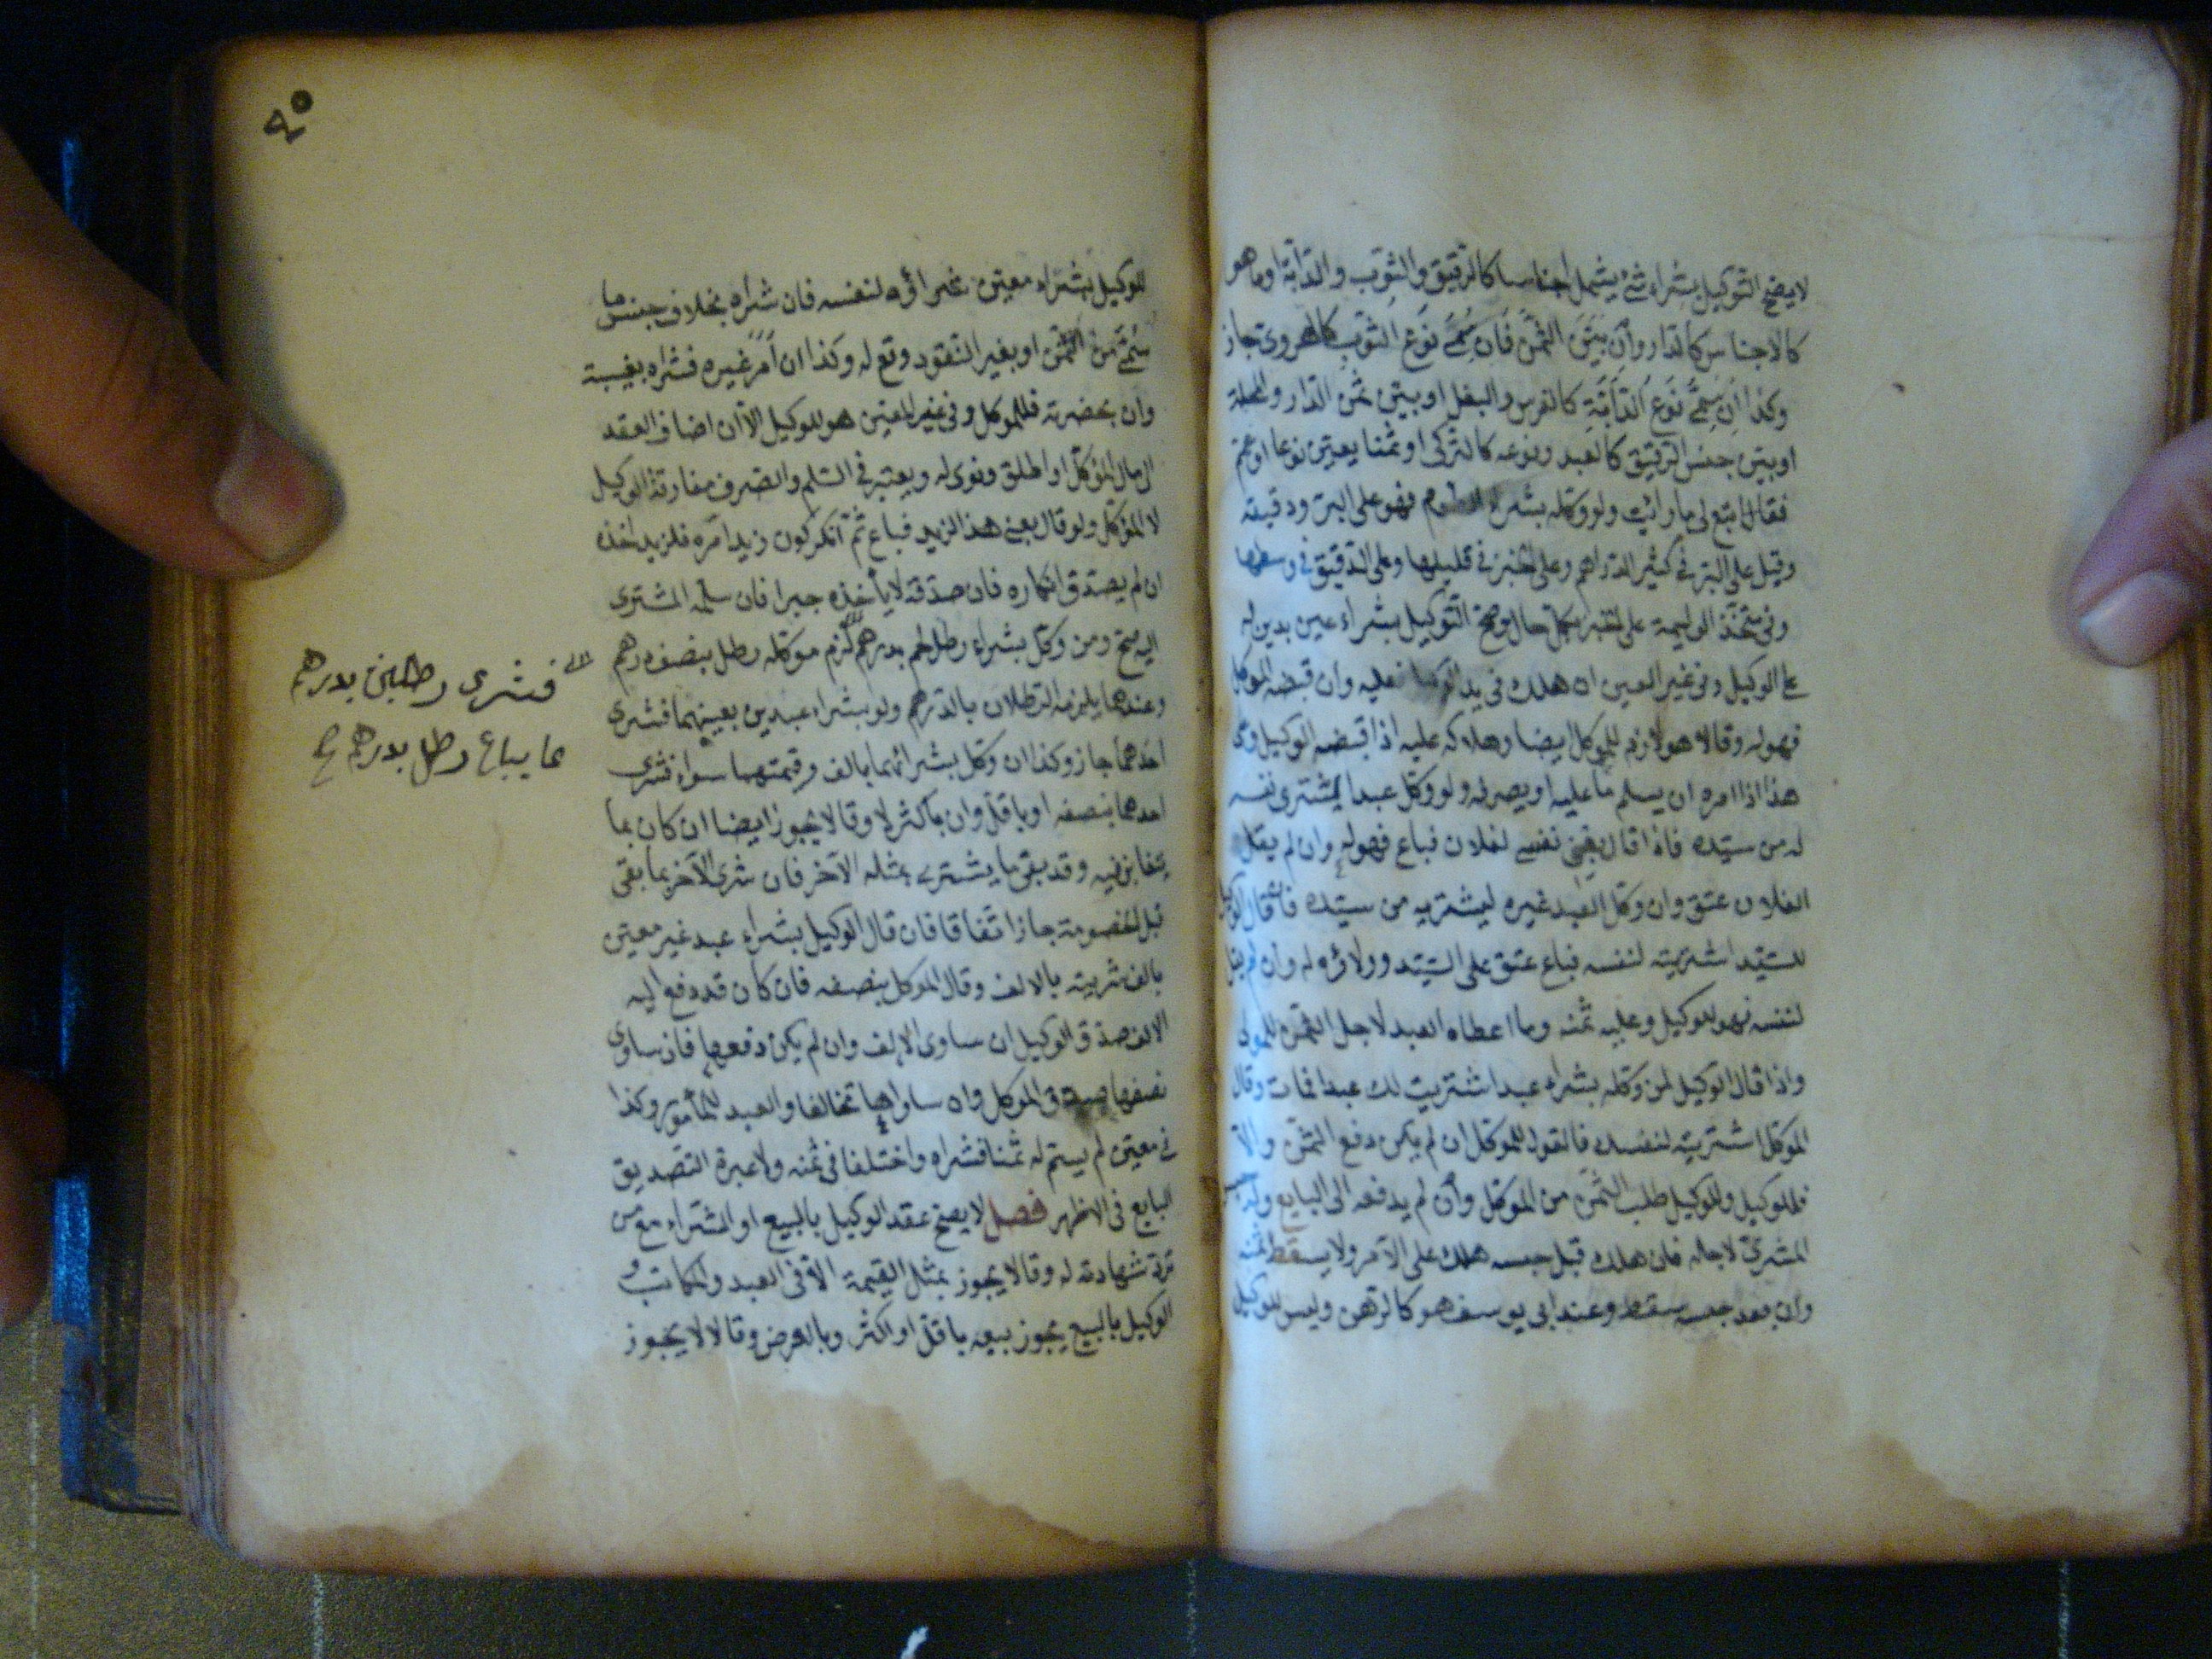 لا يصح التوكيل بشراء شئ يشمل اجناسا كالرقيق والثوب والدابة او ما هو
كالاجناس كالدار وان بين الثمن فان سمى نوع الثوب كالهروى جاز
وكذا ان سمى نوع الدابة كالفرس والبغل او بين ثمن الدار والمحلة
او بين جنس الرقيق كالعبد ونوعه كالتركى او ثمنا يعين نوعا او عمم
فقال ابتع لى ما رأيت ولو وكله بشراء الطعام فهو على البر ودقيقه
وقيل على البر فى كثير الدراهم وعلى الخبز فى قليلها وعلى الدقيق فى وسطها
وفى متخذ الوليمة على الخبز بكل حال وصح التوكيل بشراء عين بدين له
على الوكيل وفى غير العين ان هلك فى يد الوكيل فعليه وان قبضه الموكل
فهو له وقالا هو لازم للموكل ايضا وهلاكه عليه اذا قبضه الوكيل وعلى
هذا اذا امره ان يسلم ما عليه او يصرفه ولو وكل عبدا ليشترى نفسه
له من سيده فاذا قال بعنى نفسى لفلان فباع فهو له وان لم يقل
لفلان عتق وان وكل العبد غيره ليشتريه من سيده فان قال الوكيل
للسيد اشتريته لنفسه فباع عتق على السيد وولاؤه له وان لم يقل
لنفسه فهو للوكيل وعليه ثمنه وما اعطاه العبد لاجل الثمن للمولى
واذا قال الوكيل لمن وكله بشراء عبد اشتريت لك عبدا فمات وقال
الموكل اشتريته لنفسك فالقول للموكل ان لم يكن دفع الثمن والا
فللوكيل وللوكيل طلب الثمن من الموكل وان لم يدفعه الى البايع وله حبس
المشرى لاجله فان هلك قبل حبسه هلك على الآمر ولا يسقط ثمنه
وان بعد حبسه سقط وعند ابى يوسف هو كالرهن وليس للوكيل
٩٥
للوكيل بشراء معين غير اؤه لنفسه فان شراه بخلاف جنس ما
سمى من الثمن او بغير النقود وقع له وكذا ان امر غيره فشراه بغيبته
وان بحضرته فللموكل وفى غير المعين هو للوكيل الا ان اضاف العقد
الى مال الموكل او اطلق ونوى له ويعتبر فى السلم والصرف مفارقة الوكيل
لا الموكل ولو قال بعنى هذا لزيد فباع ثم انكر كون زيد امره فلزيد اخذه
ان لم يصدق انكاره فان صدقه لا يأخذه جبرا فان سلمه المشترى
اليه صح ومن وكل بشراء رطل لحم بدرهم لزم موكله رطل بنصف درهم
وعندهما يلزمه الرطلان بالدرهم ولو بشراء عبدين بعينهما فشرى
احدهما جاز وكذا ان وكل بشرائهما بالف وقيمتهما سواء فشرى
احدهما بنصفه او باقل وان باكثر لا وقالا يجوز ايضا ان كان بما
يتغابن فيه وقد بقى ما يشترى بمثله الآخر فان شرى الآخر بما بقى
قبل الخصومة جاز اتفاقا فان قال الوكيل بشراء عبد غير معين
بالف شريته بالالف وقال الموكل بنصفه فان كان قد دفع اليه
الالف صدق الوكيل ان ساوى الالف وان لم يكن دفعها فان ساوى
نصفها صدق الموكل وان ساواها تحالفا والعبد للمأمور وكذا
فى معين لم يسم له ثمنا فشراه واختلفا فى ثمنه ولا عبرة التصديق
البايع فى الاظهر فصل لا يصح عقد الوكيل بالبيع او الشراء مع من
ترد شهادته له وقالا يجوز بمثل القيمة الا فى العبد والمكاتب و
الوكيل بالبيع يجوز بيعه باقل او اكثر وبالعرض وقالا لا يجوز
فشرى رطلين بدرهم
مما يباع رطل بدرهم صح